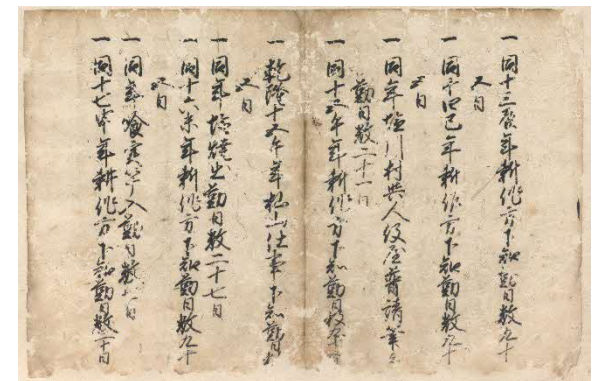 一同十三辰年耕作方下知勤日数九十
五日
一同十四巳年耕作方下知勤日数九十
五日
一同年塩川村与人役屋普請筆者
勤日数二十一日
一同十五午年耕作方下知勤日数九十
五日
一乾隆十五午年杣山仕事下知勤日
一同年焼之勤日数二十七日
一同十六未年耕作方下知勤日数九十
五日
一同年筆入勤日数日
一同十七申年耕作方下知勤日数十日